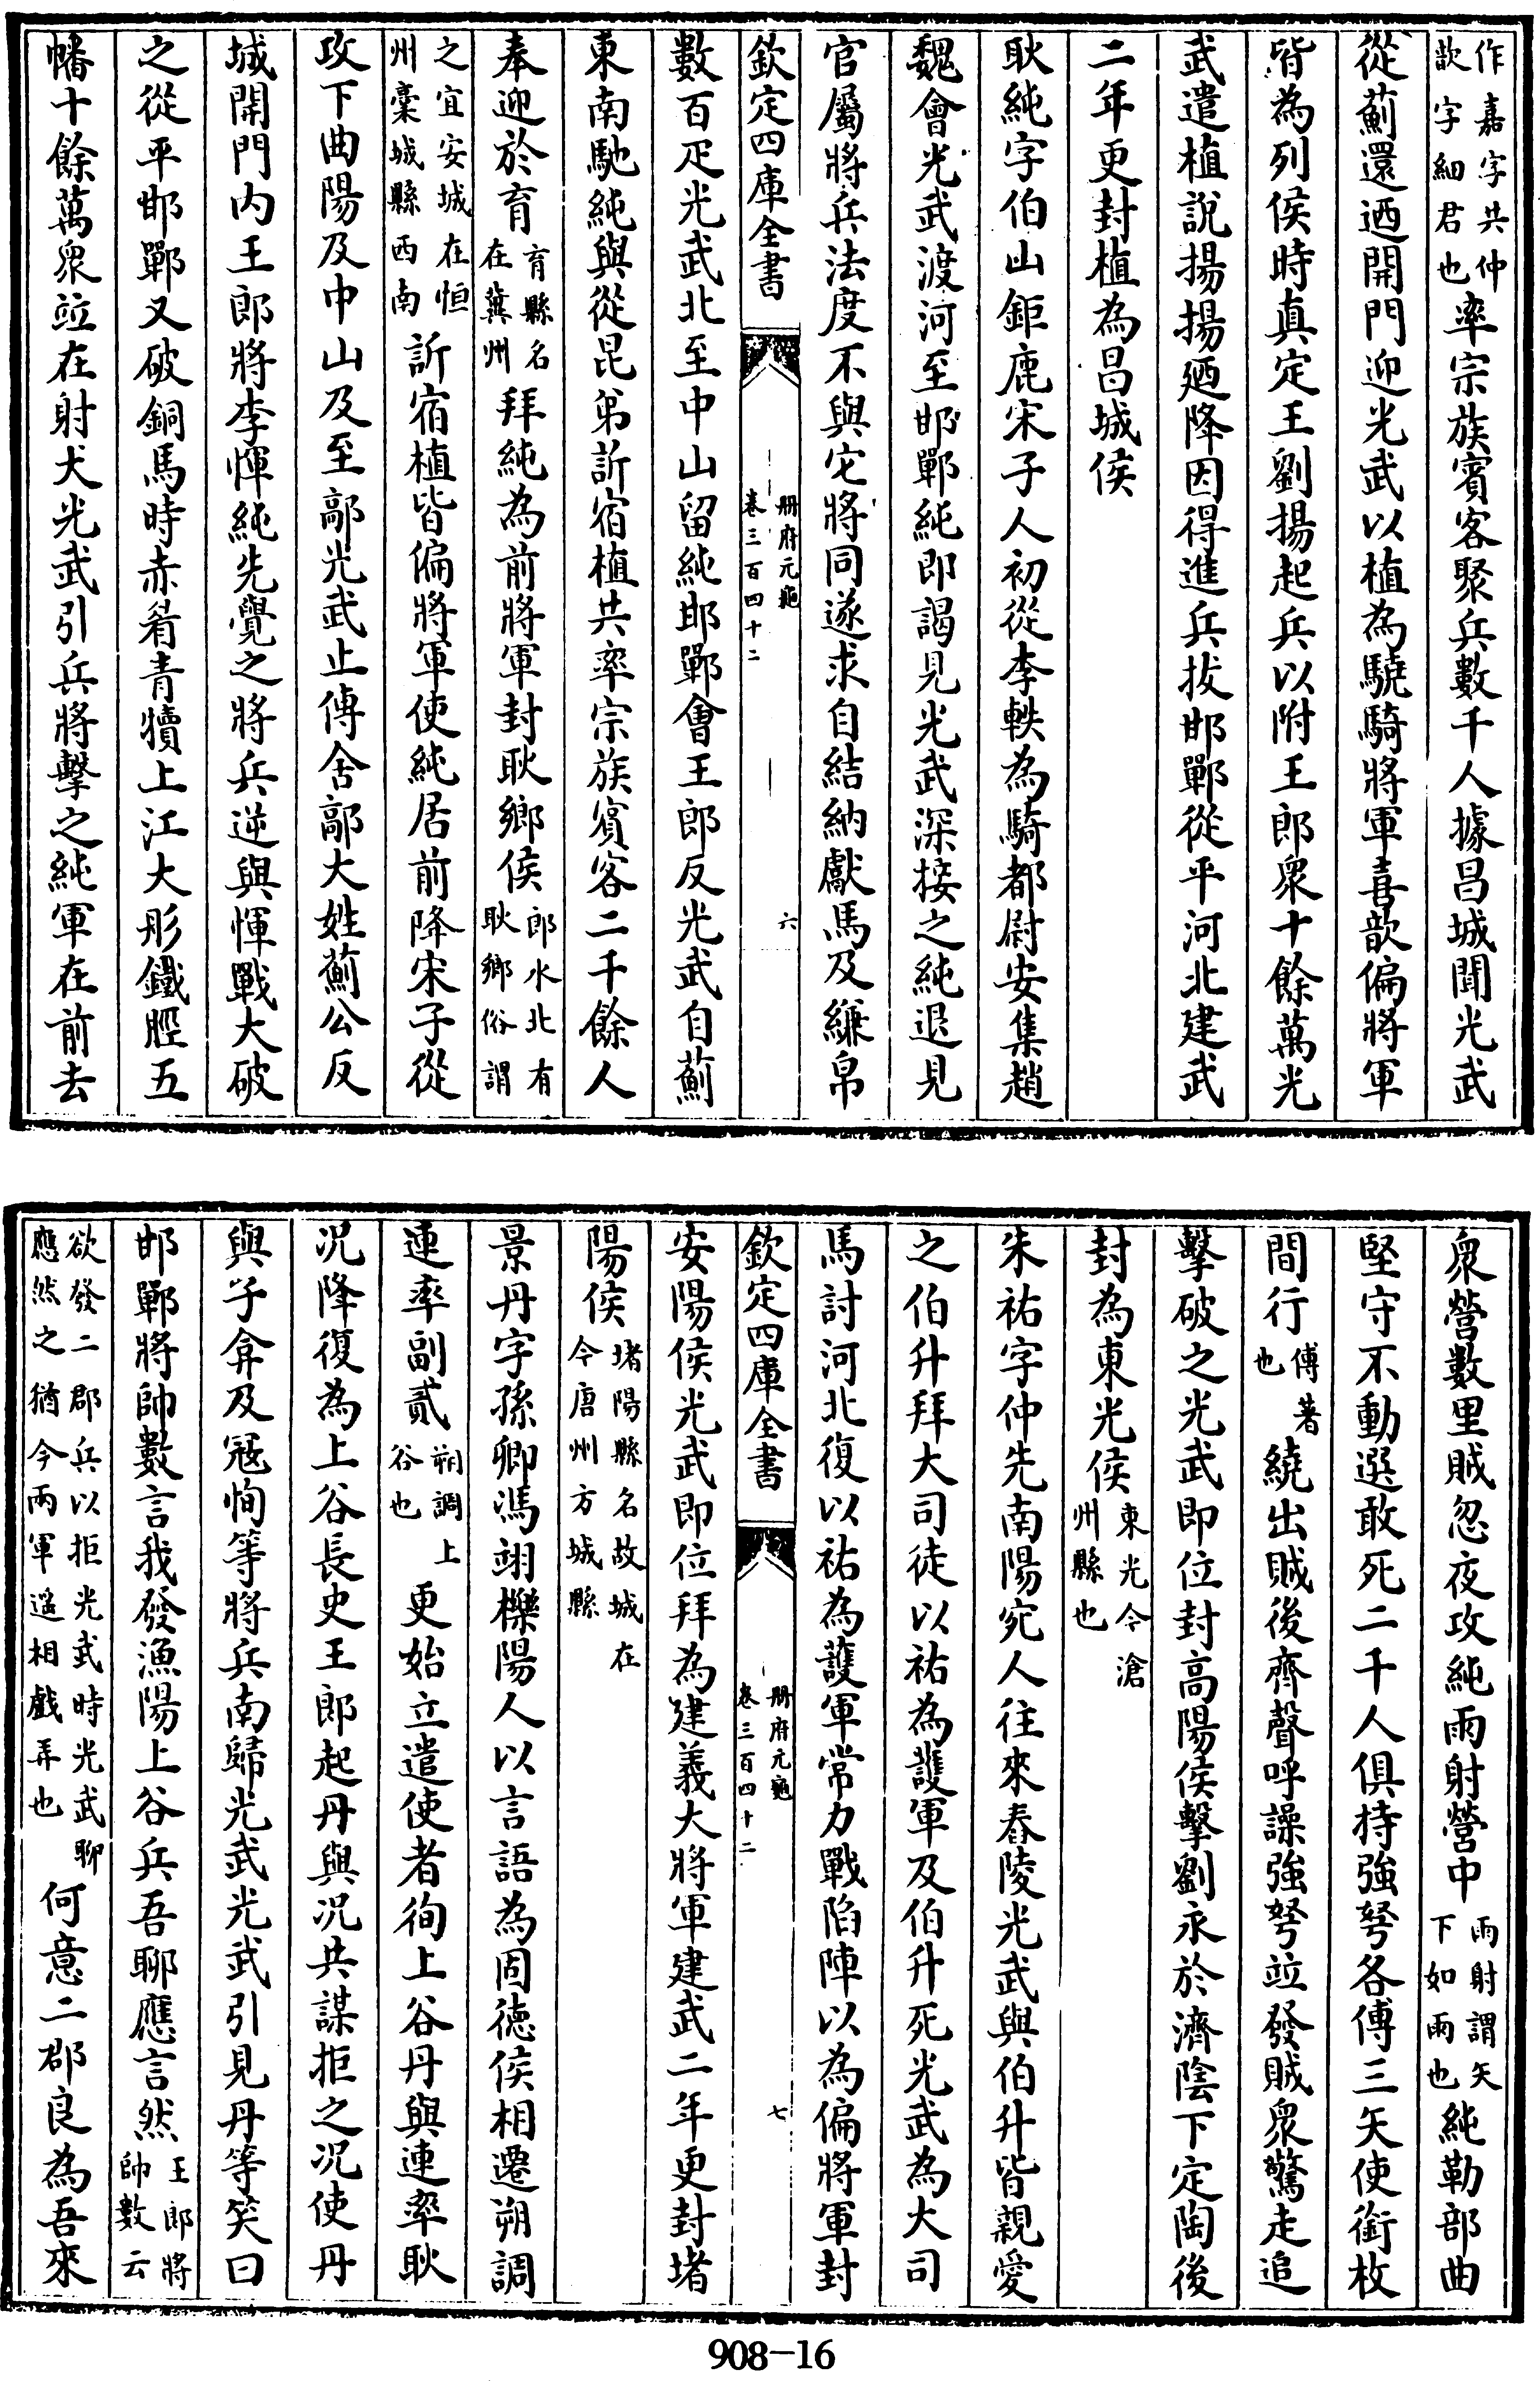 作嘉字共仲歆字細君也率宗族賓客聚兵數千人據昌城聞光武
從薊還迺開門迎光武以植為驍騎將軍喜歆偏將軍
皆為列侯時真定王劉揚起兵以附王郎衆十餘萬光
武遣植說揚揚廼降因得進兵拔邯鄲從平河北建武
二年更封植為昌城侯
耿純字伯山鉅鹿宋子人初從李軼為騎都尉安集趙
魏會光武渡河至邯鄲純即謁見光武深接之純退見
官屬將兵法度不與它將同遂求自結納獻馬及縑帛
欽定四庫全書 冊府元龜 卷三百四十二 六
數百疋光武北至中山留純邯鄲會王郎反光武自薊
東南馳純與從昆弟訢宿植共率宗族賓客二千餘人
奉迎於育育縣名在冀州拜純為前將軍封耿鄉侯郎水北有耿鄉俗謂
之宜安城在恒州槀城縣西南訢宿植皆偏將軍使純居前降宋子從
攻下曲陽及中山及至鄗光武止傳舍鄗大姓薊公反
城開門内王郎將李惲純先覺之將兵逆與惲戰大破
之從平邯鄲又破銅馬時赤眉青犢上江大彤鐵脛五
幡十餘萬衆竝在射犬光武引兵將擊之純軍在前去
衆營數里賊忽夜攻純雨射營中雨射謂矢下如雨也純勒部曲
堅守不動選敢死二千人俱持強弩各傅三矢使銜枚
間行傅著也繞出賊後齊聲呼譟強弩竝發賊衆驚走追
擊破之光武即位封高陽侯擊劉永於濟陰下定陶後
封為東光侯東光今滄州縣也
朱祐字仲先南陽宛人往來舂陵光武與伯升皆親愛
之伯升拜大司徒以祐為護軍及伯升死光武為大司
馬討河北復以祐為護軍常力戰陷陣以為偏將軍封
欽定四庫全書 冊府元龜 卷三百四十二 七
安陽侯光武即位拜為建義大將軍建武二年更封堵
陽侯堵陽縣名故城在今唐州方城縣
景丹字孫卿馮翊櫟陽人以言語為固徳侯相遷朔調
連率副貳朔調上谷也更始立遣使者徇上谷丹與連率耿
况降復為上谷長史王郎起丹與况共謀拒之况使丹
與子弇及冦恂等將兵南歸光武光武引見丹等笑曰
邯鄲將帥數言我發漁陽上谷兵吾聊應言然王郎將帥數云
欲發二郡兵以拒光武時光武聊應然之猶今兩軍遥相戲弄也何意二郡良為吾來
908-16